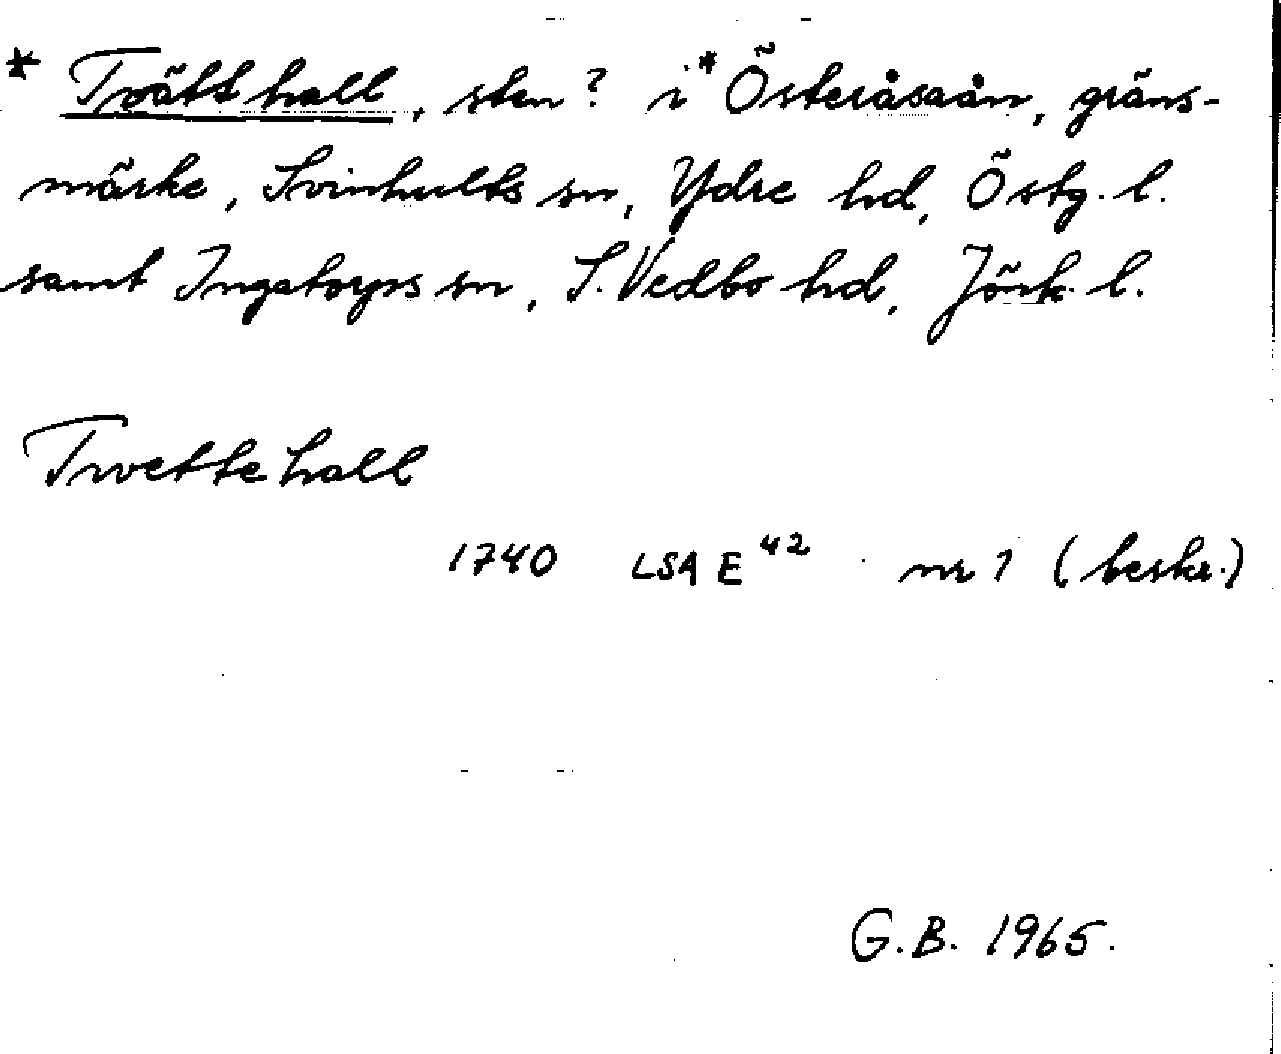 * Tvätthall, sten? i *Österåsaån, gräns-
märke, Svinhults sn, Ydre hd, Östg. l.
samt Ingatorps sn, S. Vedbo hd, Jönk. l.
Twettehall
1740 LSA E42 nr 1 (beskr.)
G.B. 1965.